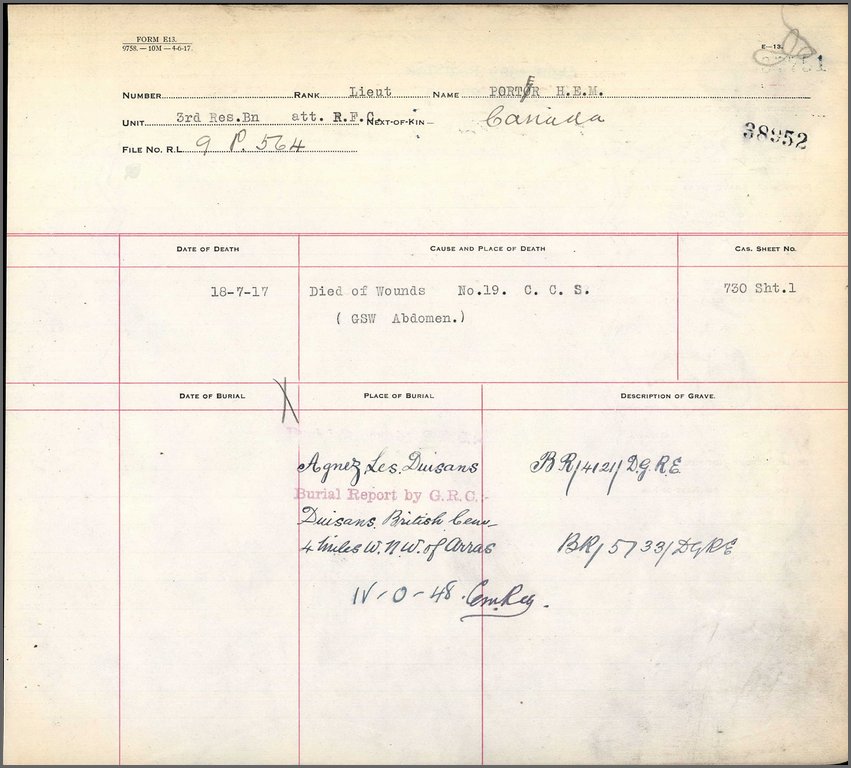 FORM E13.
9758.—10M—4-6-17.
E—13.
NUMBER RANK Lieut NAME PORTER H.E.M.
UNIT 3rd Res.Bn att. R.F.C. NEXT-OF-KIN Canada
38952
FILE NO. R.L. 9 P. 564
DATE OF DEATH CAUSE AND PLACE OF DEATH CAS. SHEET NO.
18-7-17 Died of Wounds No.19. C. C. S. 730 Sht.1
( GSW Abdomen.)
DATE OF BURIAL PLACE OF BURIAL DESCRIPTION OF GRAVE.
Agnez Les Duisans BR/4121/D.G.R.E.
Burial Report by G.R.C.-
Duisans British Cem
4 Miles W.N.W. of Arras BR/5733/DGRE
IV-O-48. Cem. Reg.